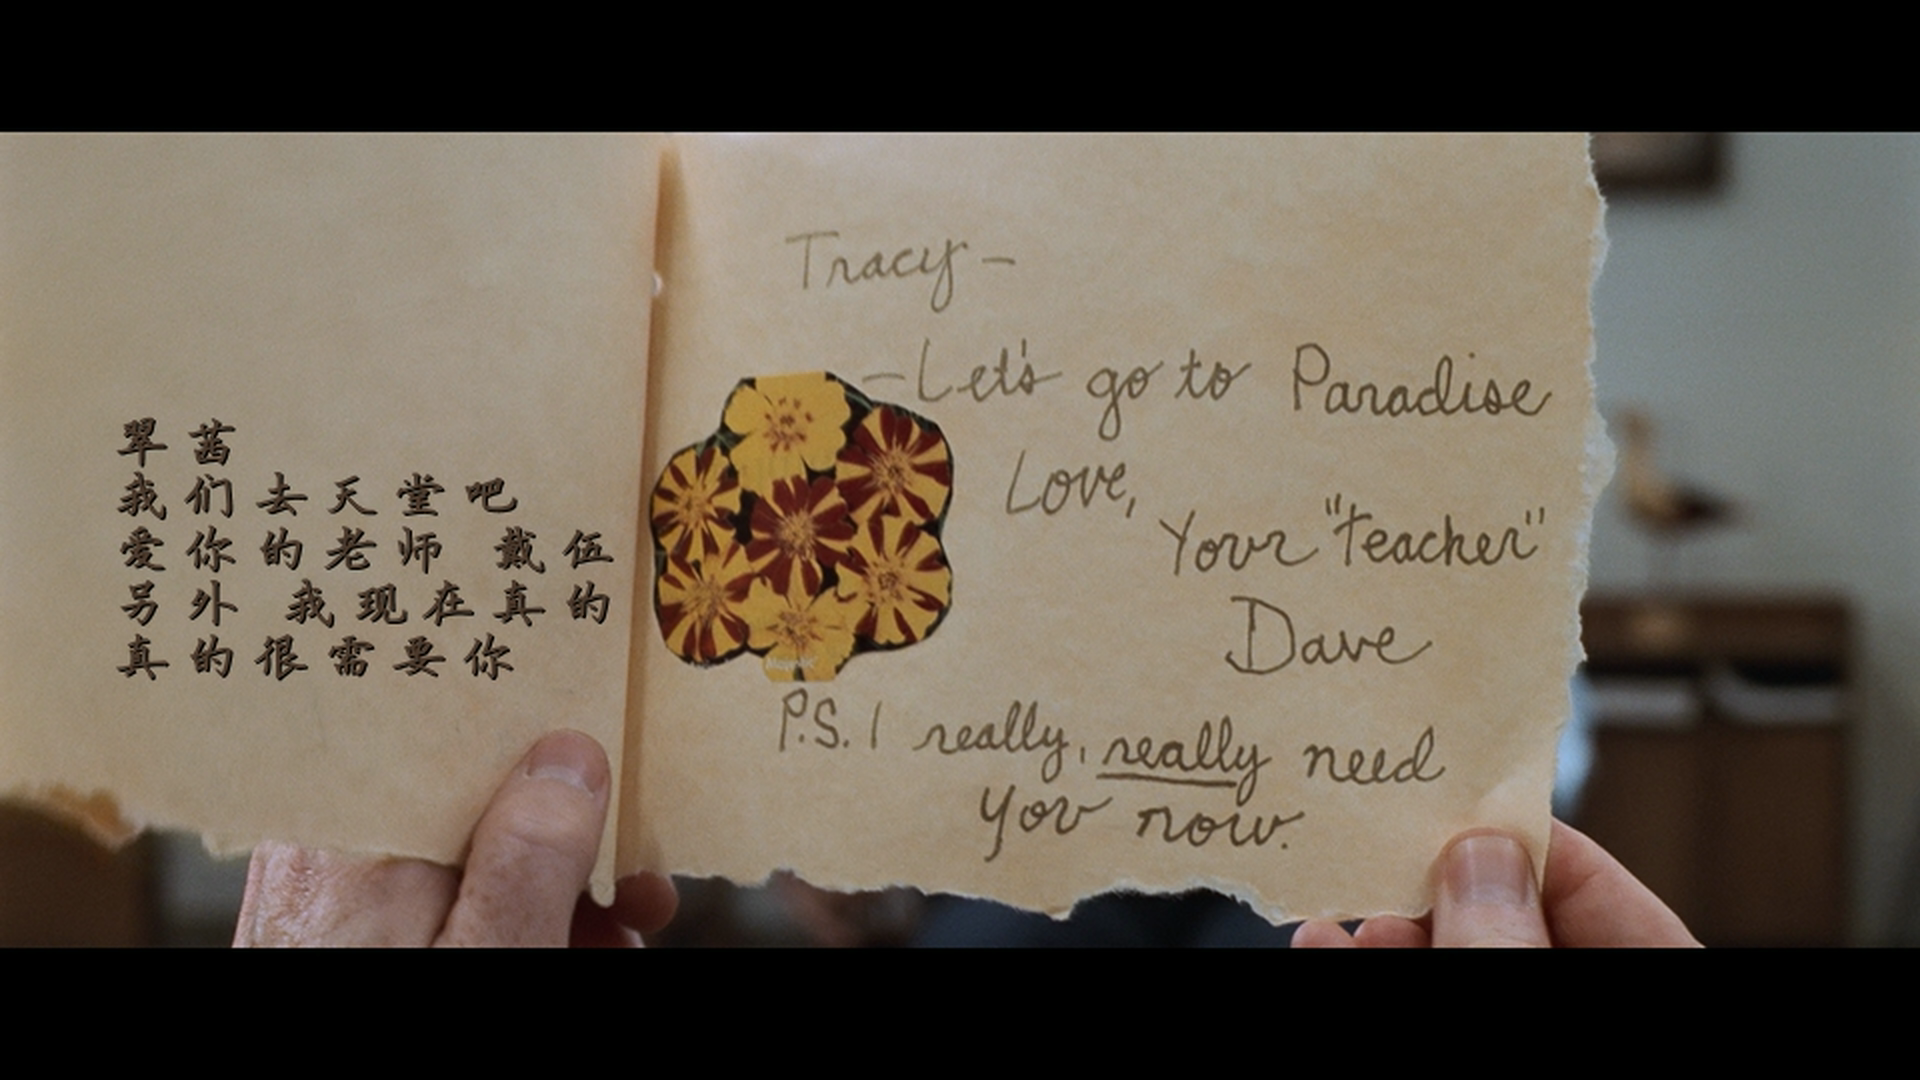 翠茜
我们去天堂吧
爱你的老师 戴伍
另外 我现在真的
真的很需要你
Tracy-
-Let's go to Paradise
Love,
Your "Teacher"
Dave
P.S. I really, really need
you now.